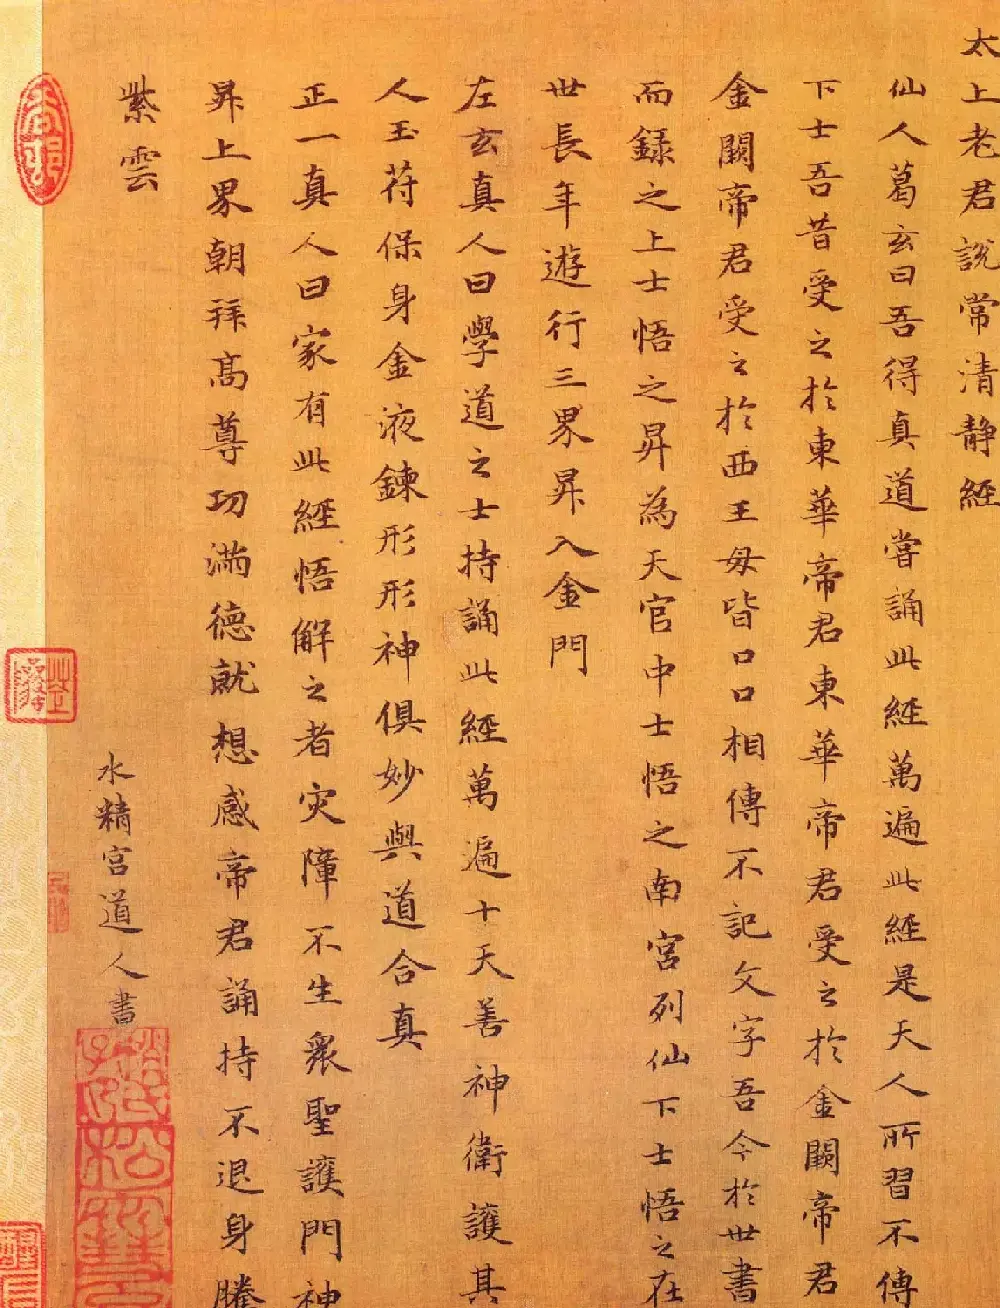 太上老君說常清靜經
仙人葛玄曰吾得真道嘗誦此經萬遍此經是天人所習不傳
下士吾昔受之於東華帝君東華帝君受之於金闕帝君
金闕帝君受之於西王母皆口口相傳不記文字吾今於世書
而録之上士悟之昇為天官中士悟之南宮列仙下士悟之在
世長年遊行三界昇入金門
左玄真人曰學道之士持誦此經萬遍十天善神衛護其
人玉符保身金液鍊形形神俱妙與道合真
正一真人曰家有此經悟解之者灾障不生衆聖護門神
昇上界朝拜高尊功滿德就想感帝君誦持不退身騰
紫雲
水精宮道人書
趙氏子昂
松雪